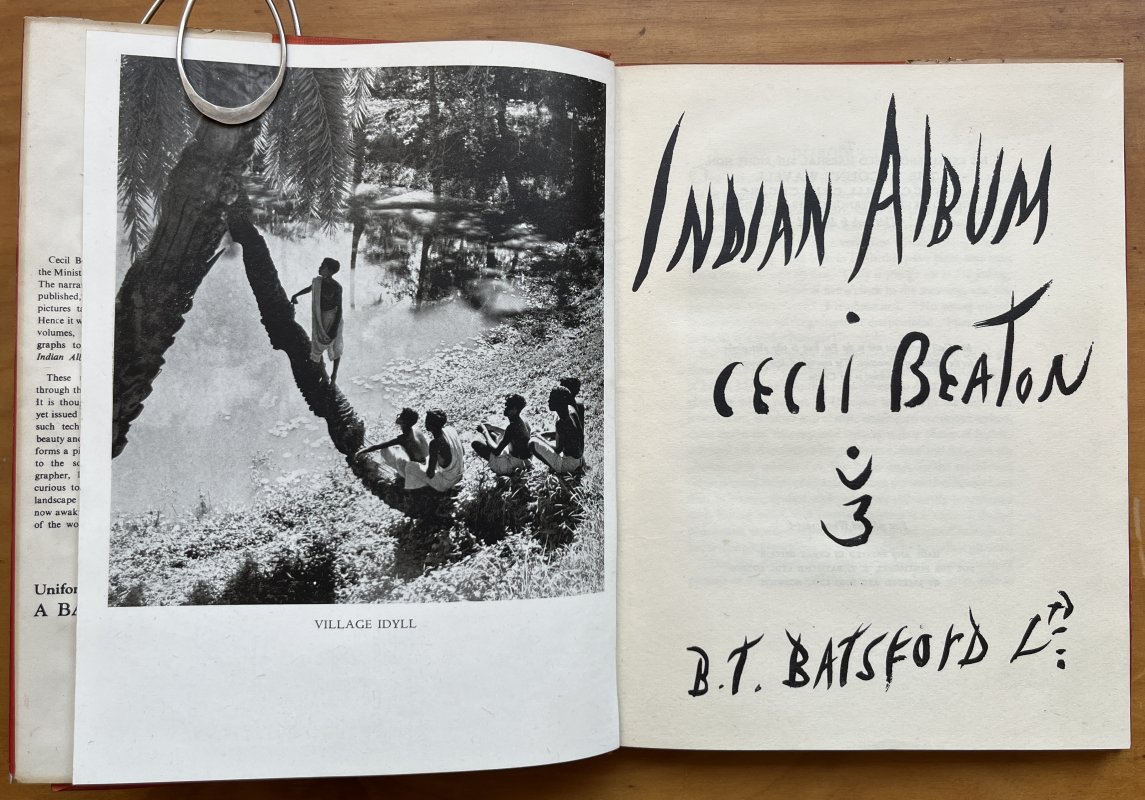 Cecil B
the Minist
The narra
published,
pictures ta
Hence it w
volumes,
graphs to
Indian Al
These
through th
It is thou
yet issued
such tech
beauty and
forms a pi
to the so
grapher, I
curious to
landscape
now awak
of the wo
Unifor
A BA
VILLAGE IDYLL
INDIAN ALBUM
CECIL BEATON
B.T. BATSFORD LTD